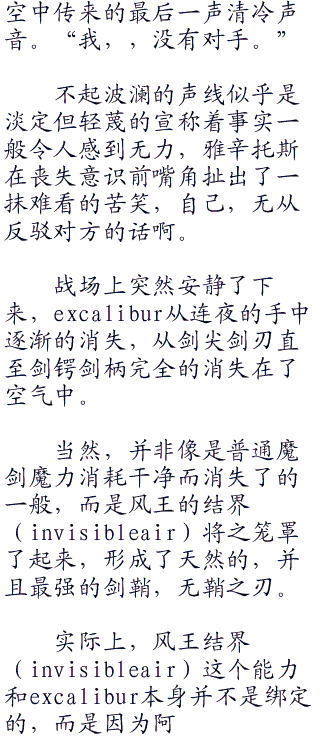 空中传来的最后一声清冷声
音。“我，，没有对手。”
不起波澜的声线似乎是
淡定但轻蔑的宣称着事实一
般令人感到无力，雅辛托斯
在丧失意识前嘴角扯出了一
抹难看的苦笑，自己，无从
反驳对方的话啊。
战场上突然安静了下
来，excalibur从连夜的手中
逐渐的消失，从剑尖剑刃直
至剑锷剑柄完全的消失在了
空气中。
当然，并非像是普通魔
剑魔力消耗干净而消失了的
一般，而是风王的结界
（invisibleair）将之笼罩
了起来，形成了天然的，并
且最强的剑鞘，无鞘之刃。
实际上，风王结界
（invisibleair）这个能力
和excalibur本身并不是绑定
的，而是因为阿